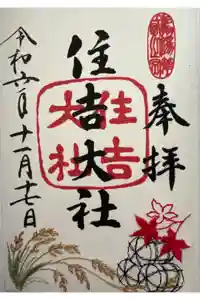 奉拝
住吉大社
住吉
大社
令和六年十一月十七日